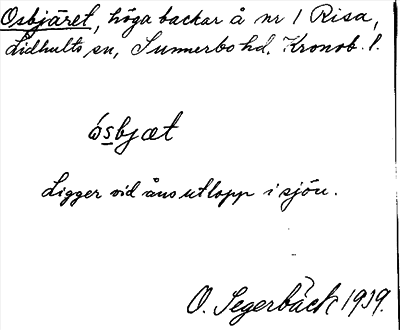 Osbjäret, höga backar å nr 1 Risa,
Lidhults sn, Sunnerbo hd. Kronob. l.
ósbjæt
Ligger vid åns utlopp i sjön.
O. Segerbäck 1939.